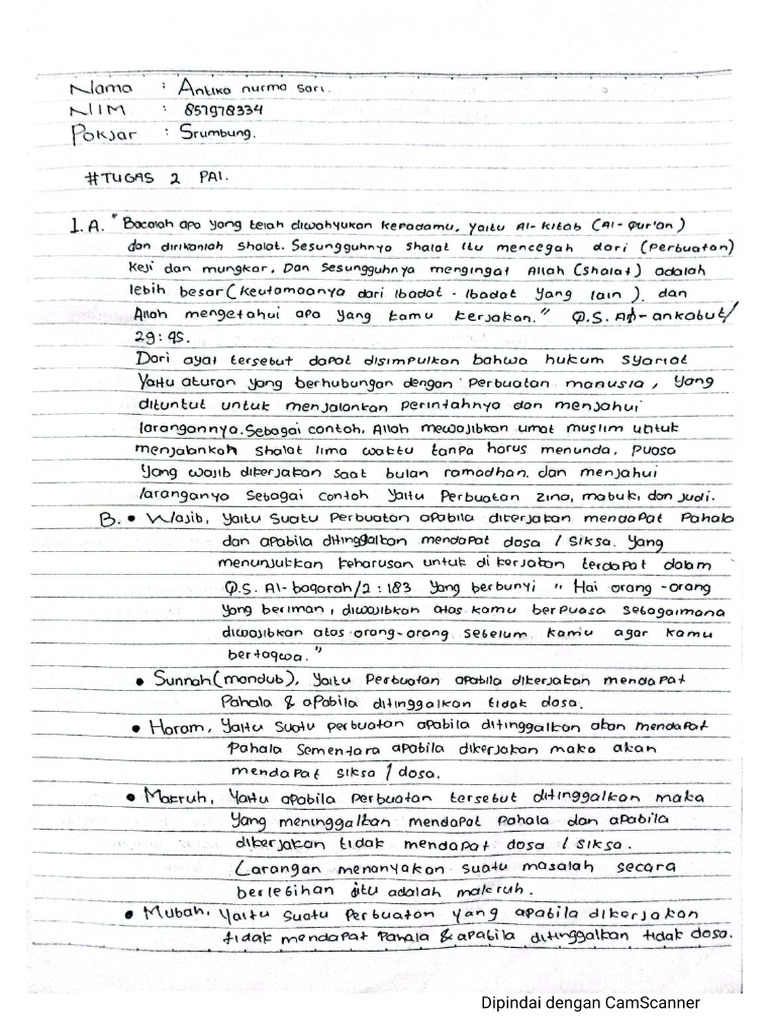 Nama : Antika nurma sari.
NIM : 857978334
Pokjar : Srumbung.
#TUGAS 2 PAI.
1. A. "Bacalah apa yang telah diwahyukan kepadamu, yaitu Al-kitab (Al-Qur'an)
dan dirikanlah shalat. Sesungguhnya shalat itu mencegah dari (perbuatan)
keji dan mungkar, Dan sesungguhnya mengingat Allah (shalat) adalah
lebih besar (keutamaanya dari ibadat-ibadat yang lain). dan
Allah mengetahui apa yang kamu kerjakan." Q.S. Al-ankabut/
29:45.
Dari ayat tersebut dapat disimpulkan bahwa hukum syariat
yaitu aturan yang berhubungan dengan perbuatan manusia, yang
dituntut untuk menjalankan perintahnya dan menjahui
larangannya. Sebagai contoh, Allah mewajibkan umat muslim untuk
menjalankah shalat lima waktu tanpa harus menunda, puasa
yang wajib dikerjakan saat bulan ramadhan. dan menjahui
laranganya sebagai contoh yaitu perbuatan zina, mabuk, dan judi.
B. • Wajib, yaitu suatu perbuatan apabila dikerjakan mendapat pahala
dan apabila ditinggalkan mendapat dosa / siksa. yang
menunjukkan keharusan untuk di kerjakan terdapat dalam
Q.S. Al-baqarah/2:183 yang berbunyi " Hai orang-orang
yang beriman, diwajibkan atas kamu berpuasa sebagaimana
diwajibkan atas orang-orang sebelum kamu agar kamu
bertaqwa."
• Sunnah (mandub), yaitu perbuatan apabila dikerjakan mendapat
pahala & apabila ditinggalkan tidak dosa.
• Haram, yaitu suatu perbuatan apabila ditinggalkan akan mendapat
pahala sementara apabila dikerjakan maka akan
mendapat siksa / dosa.
• Makruh, yaitu apabila perbuatan tersebut ditinggalkan maka
yang meninggalkan mendapat pahala dan apabila
dikerjakan tidak mendapat dosa / siksa.
Larangan menanyakan suatu masalah secara
berlebihan itu adalah makruh.
• Mubah, yaitu suatu perbuatan yang apabila dikerjakan
tidak mendapat pahala & apabila ditinggalkan tidak dosa.
Dipindai dengan CamScanner